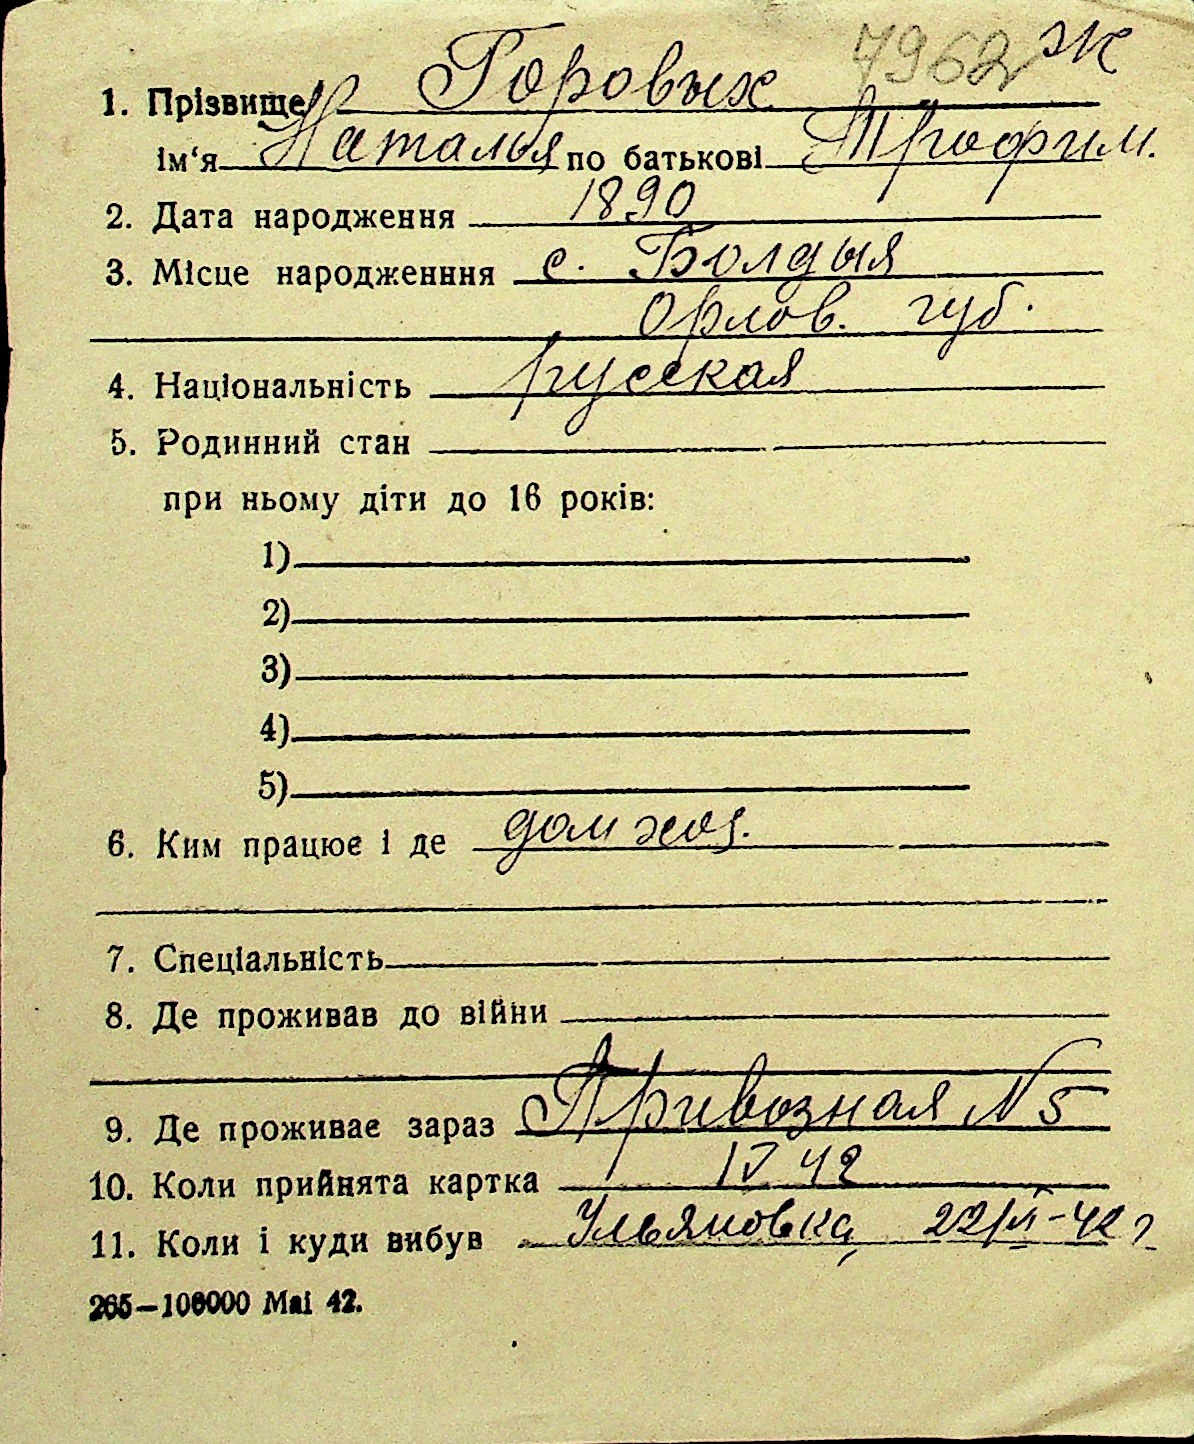 7962 Ж
1. Прізвище Горовых
ім‘я Наталья по батькові Трофим.
2. Дата народження 1890
3. Місце народженння с. Болдыя
Орлов. губ.
4. Національність русская
5. Родинний стан
при ньому діти до 16 років:
1)
2)
3)
4)
5)
6. Ким працює і де дом хоз.
7. Спеціальність
8. Де проживав до війни
9. Де проживає зараз Привозная N 5
10. Коли прийнята картка IV 42
11. Коли і куди вибув Ульяновка, 22/ -42 г
265—100000 Маі 42.